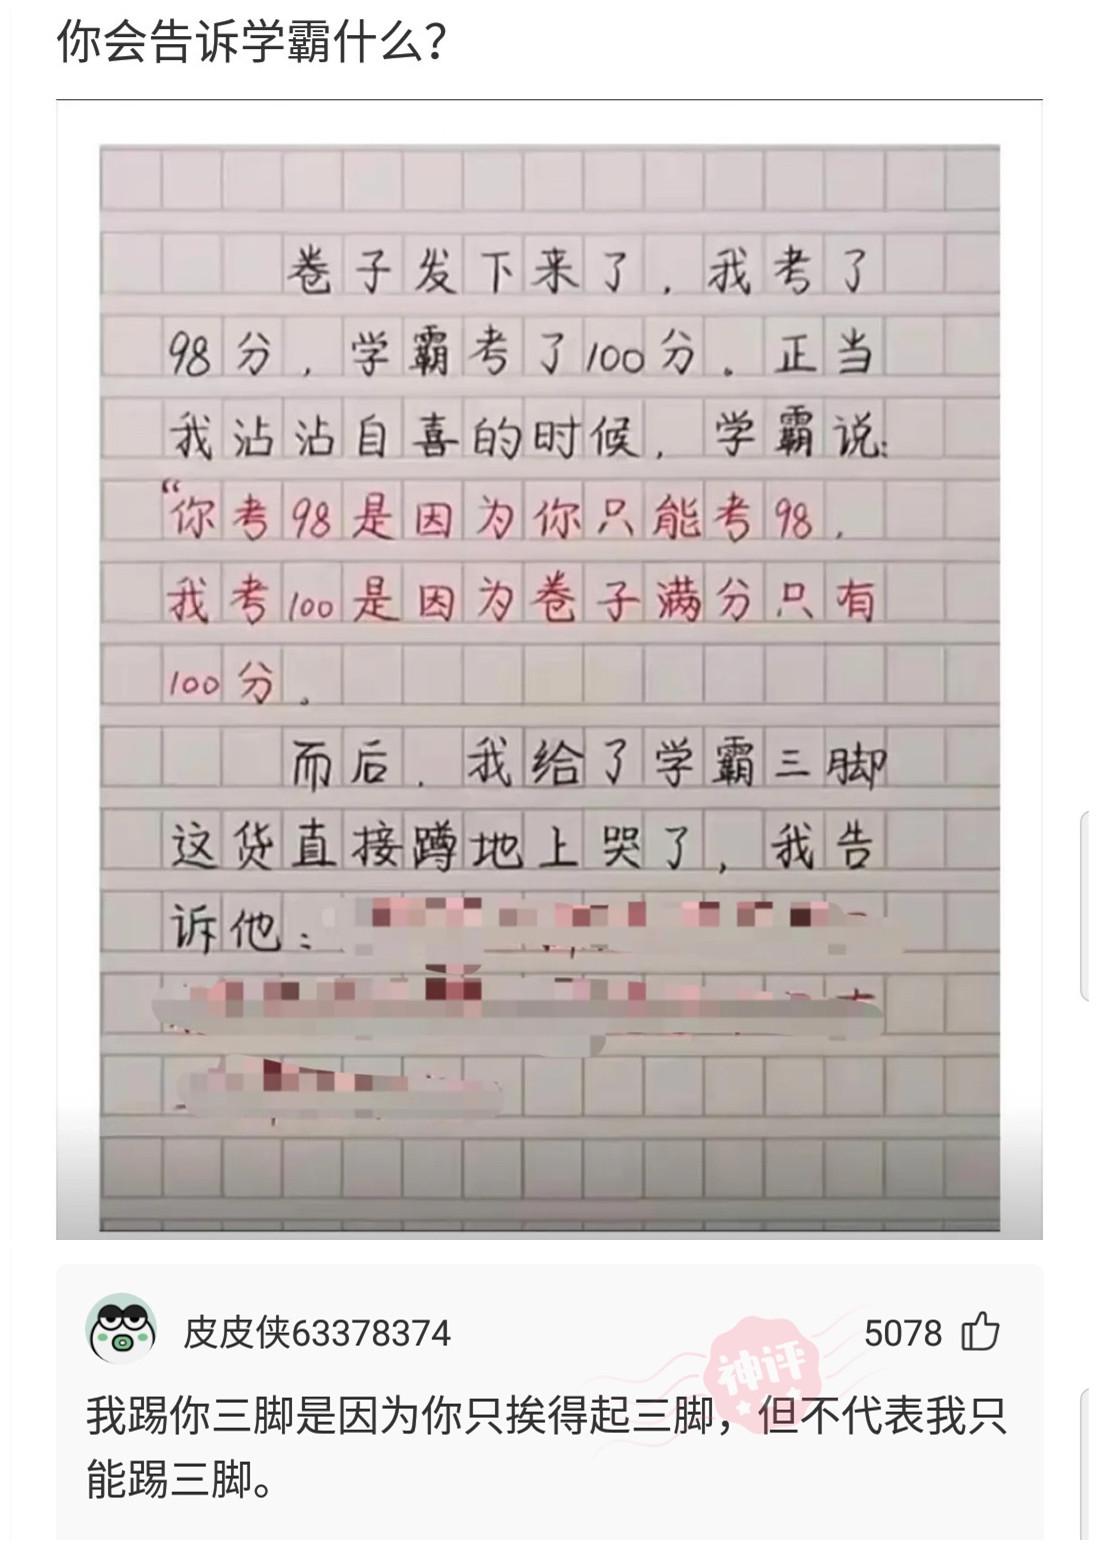 你会告诉学霸什么？
卷子发下来了，我考了
98分，学霸考了100分。正当
我沾沾自喜的时候，学霸说：
“你考98是因为你只能考98，
我考100是因为卷子满分只有
100分。
而后，我给了学霸三脚
这货直接蹲地上哭了，我告
诉他：
皮皮侠63378374
5078
神评
我踢你三脚是因为你只挨得起三脚，但不代表我只
能踢三脚。